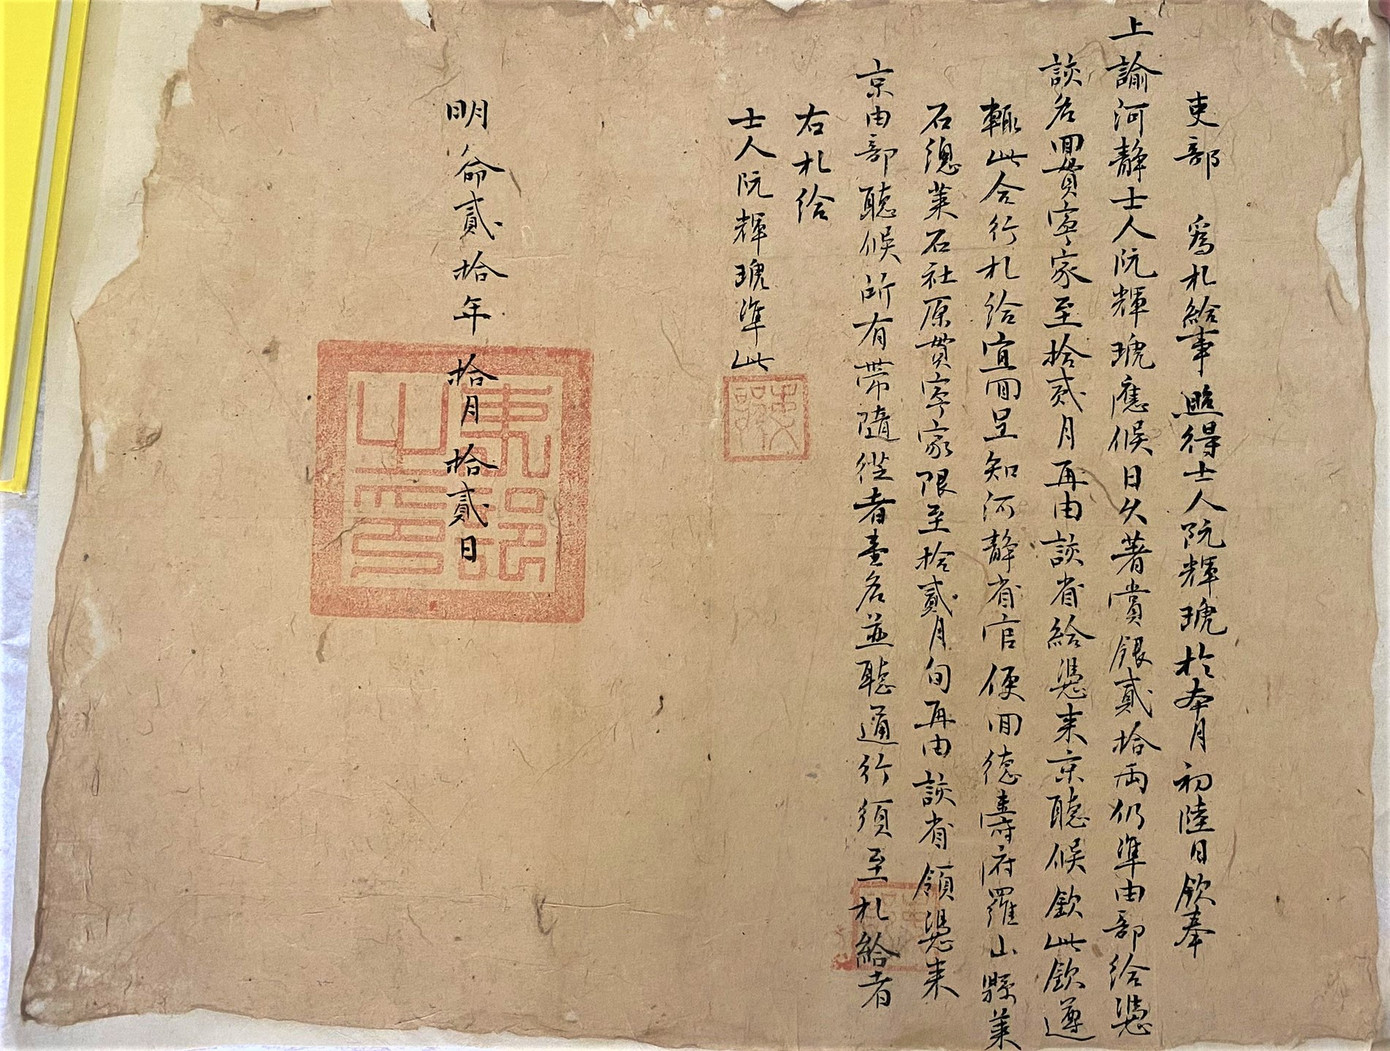 吏部 爲札給事照得士人阮輝琥於本月初陸日欽奉
上諭河靜士人阮輝琥應候日久著賞銀貳拾両仍準由部給憑
該名回貫寧家至拾貳月再由該省給憑来京聽候欽此欽遵
輒此合行札给宜回呈知河靜省官便回德壽府羅山縣萊
石總萊石社原貫寧家限至拾貳月旬再由該省領憑来
京由部聽候所有帶隨從者壹名並聽通行須至札給者
右札给
士人阮輝琥準此
明命貳拾年拾月拾貳日
吏部之印
吏部